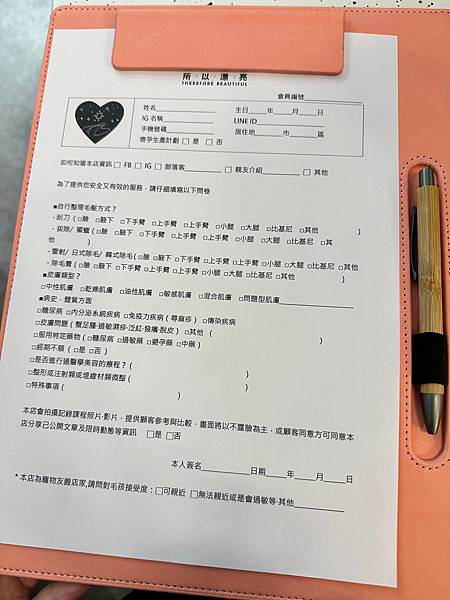 所‧以‧漂‧亮
THEREFORE BEAUTIFUL
會員編號____________
姓名____________ 生日____年____月____日
IG 名稱____________ LINE ID____________
手機號碼____________ 居住地______市______區
懷孕生產計劃 □ 是 □ 否
如何知道本店資訊 □ FB □ IG □ 部落客________ □ 親友介紹________ □ 其他
為了提供您安全又有效的服務，請仔細填寫以下問卷
■自行整理毛髮方式？
‧刮刀（□臉 □腋下 □下手臂 □上手臂 □上手臂 □小腿 □大腿 □比基尼 □其他 ）
‧拔除/ 蜜蠟（□臉 □腋下 □下手臂 □上手臂 □上手臂 □小腿 □大腿 □比基尼 □其
他 ）
‧雷射/ 日式除毛/ 韓式除毛（□臉 □腋下 □下手臂 □上手臂 □上手臂 □小腿 □大腿 □比基尼 □其他
‧除毛膏（□臉 □腋下 □下手臂 □上手臂 □上手臂 □小腿 □大腿 □比基尼 □其他 ）
■皮膚類型？
□中性肌膚 □乾燥肌膚 □油性肌膚 □敏感肌膚 □混合肌膚 □問題型肌膚____________
■病史、體質方面
□糖尿病 □內分泌系統疾病 □免疫力疾病（蕁麻疹）□傳染疾病
□皮膚問題（蟹足腫‧過敏濕疹‧泛紅‧發癢‧脫皮） □其他 （ ）
□服用特定藥物（□糖尿病 □過敏藥 □避孕藥 □中藥）
□經期不順（ □是 □否 ）
□是否進行過醫學美容的療程？（ ）
□整形或注射類或埋線材類微整（ ）
□特殊事項（ ）
本店會拍攝記錄課程照片‧影片，提供顧客參考與比較，畫面將以不露臉為主，或顧客同意方可同意本
店分享已公開文章及限時動態等資訊 □是 □否
本人簽名____________日期____年____月____日
* 本店為寵物友善店家,請問對毛孩接受度：□可親近 □無法親近或是會過敏等‧其他____________